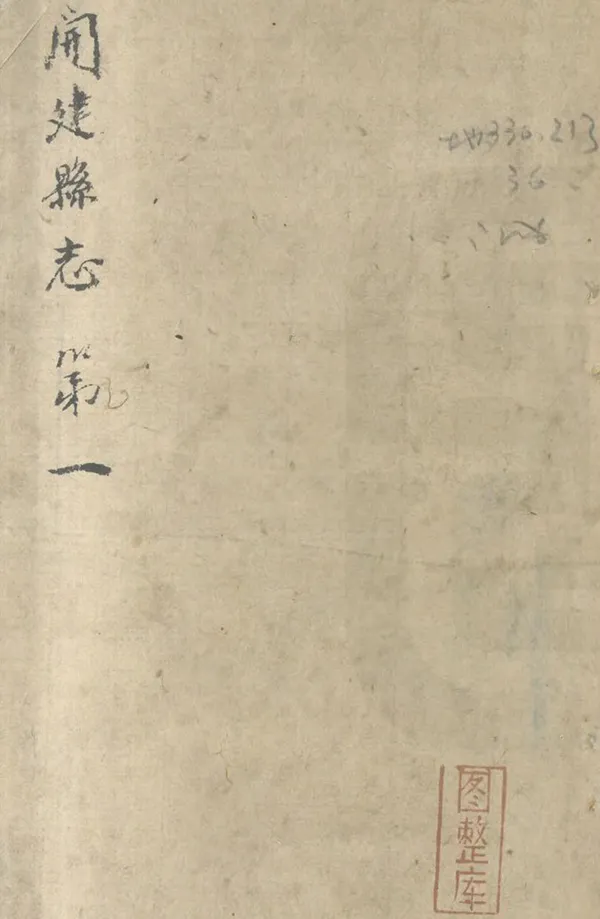 開建縣志 第一
地330.213
36
图整库